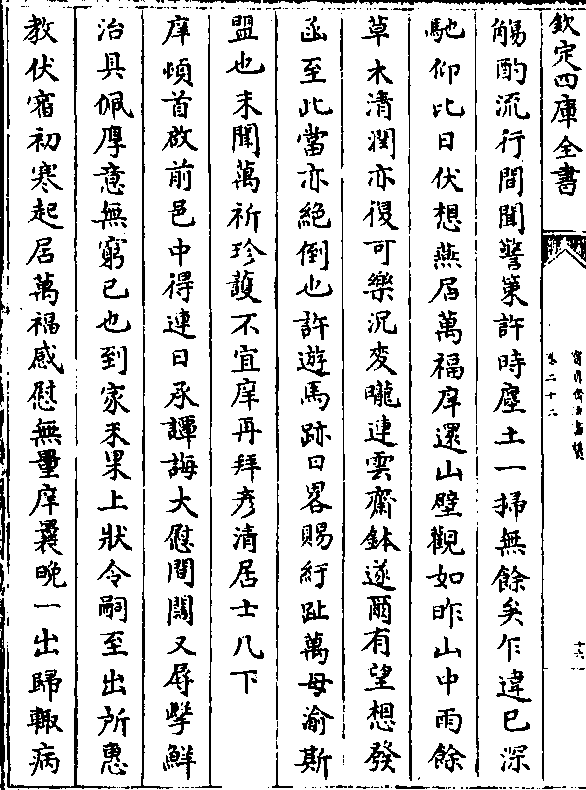 欽定四庫全書
卷二十二
觴酌流行間聞警策許時塵土一掃無餘矣乍違已深
馳仰比日伏想燕居萬福庠還山壁觀如昨山中雨餘
草木清潤亦復可樂況麥隴連雲齋鉢遂爾有望想發
函至此當亦絶倒也許遊馬跡日畧賜紆趾萬毋渝斯
盟也未聞萬祈珍護不宜庠再拜彥清居士几下
庠頓首啟前邑中得連日承譚誨大慰間闊又辱挈鮮
治具佩厚意無窮已也到家未果上狀令嗣至出所惠
教伏審初寒起居萬福感慰無量庠曩晚一出歸輙病